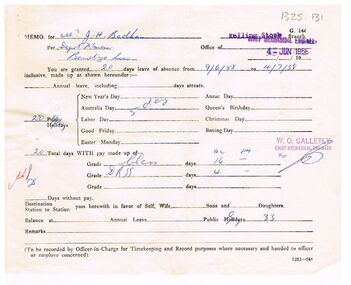 B25. B1
Rolling Stock
G. 144
MEMO. for Mr J. H.
Branch,
CHIEF MECHANICAL ENGINEER
Per
Office of
4 - JUN 1958
Bendigo
19
You are granted 20 days leave of absence from 9/6/58 to 4/7/58
inclusive, made up as shown hereunder :—
Annual leave, including days arrears.
New Year's Day
Anzac Day
Australia Day
Queen's Birthday
20 Public Holidays
Labor Day
Christmas Day
Good Friday
Boxing Day
Easter Monday
W. O. GALLETLY
CHIEF MECHANICAL ENGINEER
Per
20 Total days WITH pay made up of
Grade Class 16 —
Grade 4 —
Days without pay.
Destination
Station to Station pass herewith in favor of Self, Wife, Sons and Daughters.
Balance at Annual Leave Public Holidays 33
Remarks
(To be recorded by Officer-in-Charge for Timekeeping and Record purposes where necessary and handed to officer
or employe concerned).